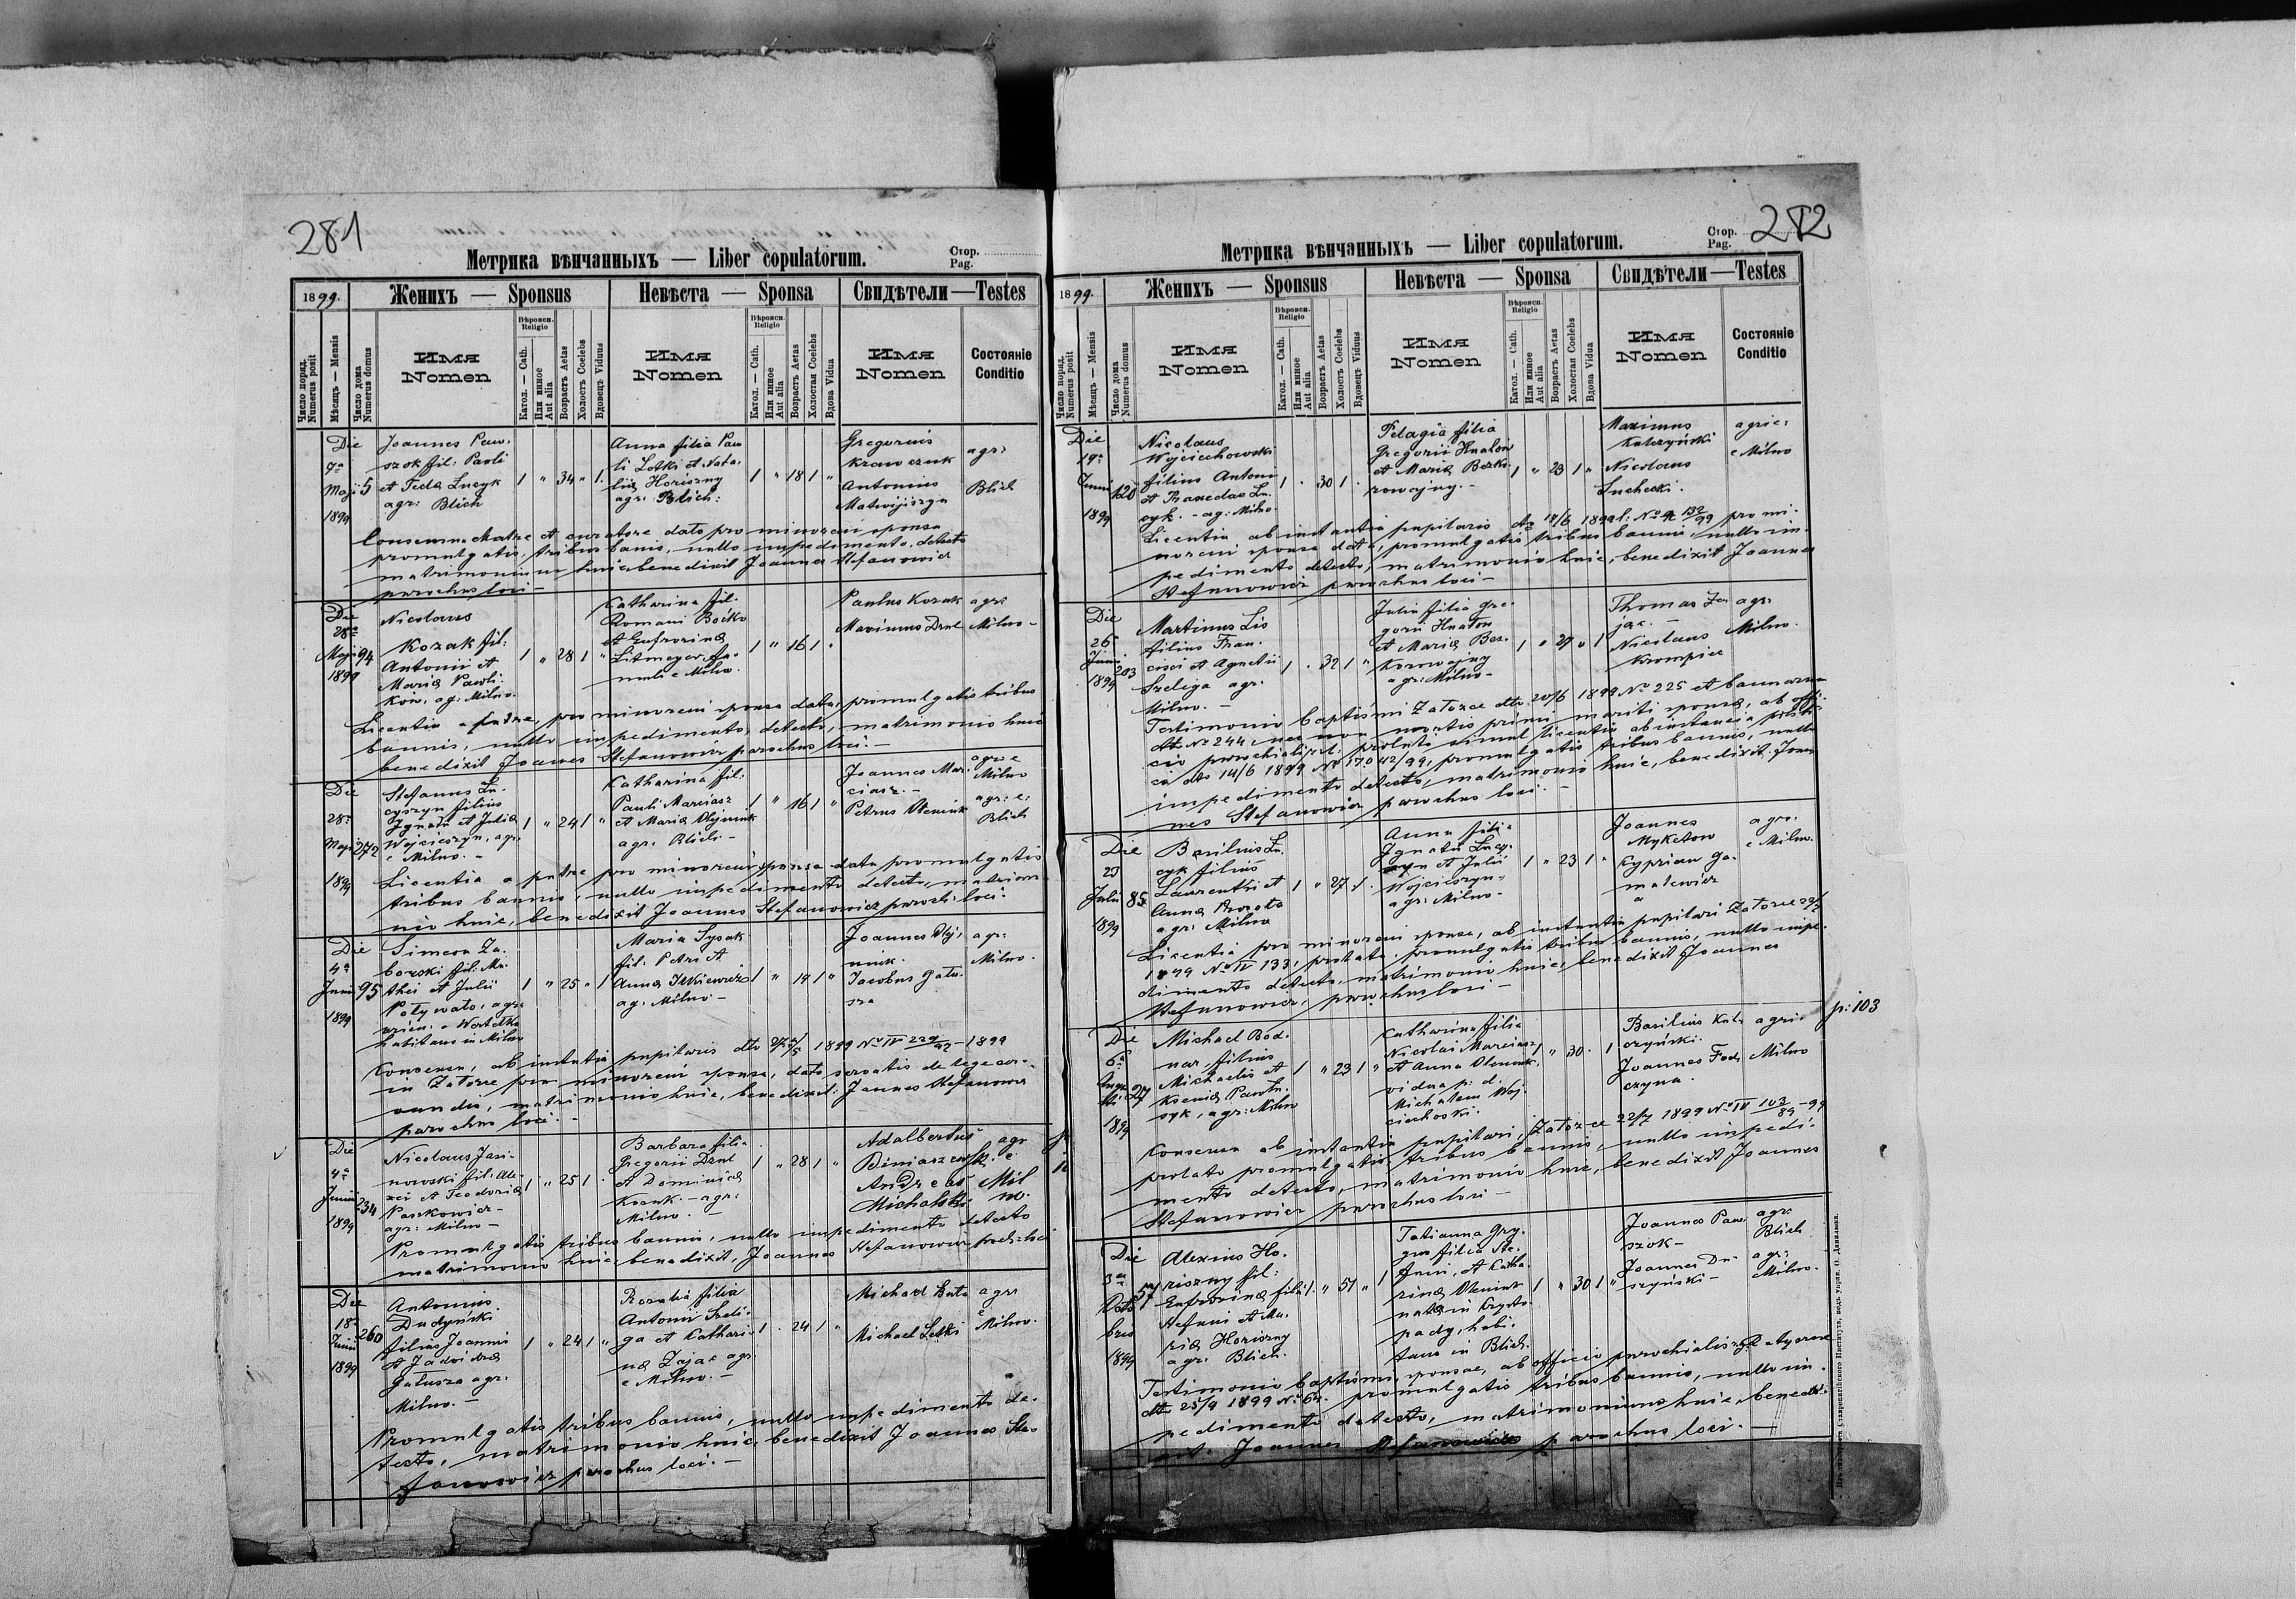 281
Метрика вѣнчанныхъ — Liber copulatorum.
Стор.
Pag.
1899.
Женихъ — Sponsus
Невѣста — Sponsa
Свидѣтели — Testes
Число поряд.
Numerus posit
Мѣсяць — Mensis
Число дома
Numerus domus
Имя
Nomen
Вѣроисп.
Religio
Катол. — Cath.
Или инное
Aut alia
Возрастъ Aetas
Холостъ Coelebs
Вдовецъ Viduus
Имя
Nomen
Вѣроисп.
Religio
Катол. — Cath.
Или инное
Aut alia
Возрастъ Aetas
Холостая Coelebs
Вдова Vidua
Имя
Nomen
Состояніе
Conditio
Die
Maji
1899
5
Joannes Paw-
szok fil: Pauli
et Tecla Lucyk
agr: Blich
1 " 34 " 1
Anna filia Pau
li Letki et Nata-
lia Horiszny
agr. Blich:
1 " 18 1 "
Gregorius
Krawczuk
Antonius
Matwijiszyn
agr:
Blich
Consensu Matre et curatore dato pro minoreni sponsa
promulgatis tribus banis, nullo impedimento detecto
matrimonium huic benedixit Joannes Stefanowicz
parochus loci -
Die
28a
Maji
1899
94
Nicolaus
Kozak fil:
Antonii et
Maria Pawli-
ków, ag: Milno.
1 " 28 1 "
Catharina fil.
Romani Boćko
et Eufrosina
1 " 16 1 "
Paulus Kozak
Maximus Dzul
agr:
Milno -
Licentia a patre, pro minoreni sponsa data, promulgatis tribus
bannis, nullo impedimento detecto, matrimonio huic
benedixit Joannes Stefanowicz parochus loci. -
Die
28a
Maji
1899
272
Stefanus Lu-
cyszyn filius
Ignatii et Julia
Wojcieszyn, agr.
e Milno. -
1 " 24 1 "
Catharina fil:
Pauli Marciasz
et Maria Olejnink
agr. Blich -
1 " 16 1 "
Joannes Mar-
ciasz. -
Petrus Oleniuk
agr: e
Milno
agr: e:
Blich
Licentia a patre pro minoreni sponsa data promulgatis
tribus bannis, nullo impedimento detecto, matrimo-
nio huic, benedixit Joannes Stefanowicz paroch: loci.
Die
4a
Junii
1899
95
Simeon Za-
borski fil. Ma-
thei et Julii
Potywato, agr.
habitans in Milno
1 " 25 " 1
Maria Sysak
fil. Petri et
Anna Iskiewicz
ag. Milno -
1 " 19 1 "
Joannes Olij-
nink.
Jacobus Gatu-
sza
agr:
Milno.
Consensu, ab instantia pupilaris dto 27/5 1899 No IV - 1899
in Zatorce pro minoreni sponsa, dato servatis de lege ser-
vandis, matrimonio huic, benedixit: Joannes Stefanowicz
parochus loci. -
Die
4a
Junii
1899
234
Nicolaus Jasi-
nowski fil: Ale-
xei et Teodoria
Paszkowicz -
agr: Milno -
1 " 25 1
Barbara filia
Gregorii Dzul
et Dominica
Kozak. - agr:
Milno. -
1 " 28 1 "
Adalbertus
Biniaszewski
Andreas
Michalski
agr
e
Mil
no.
Promulgatis tribus bannis, nullo impedimento detecto
matrimonio huic, benedixit, Joannes Stefanowicz paroch: loci
Die
18a
Junii
1899
260
Antonius
Dudyński
filius Joannis
et Jadvidra
Gatusza agr.
Milno. -
1 " 24 1 "
Rozalia filia
Antonii Szeli-
ga et Cathari-
na Zając agr
e Milno. -
1 . 24 1 "
Michael Buta
Michael Letki
agr:
e
Milno.
Promulgatis tribus bannis, nullo impedimento de-
tecto, matrimonio huic, benedixit Joannes Ste-
fanowicz parochus loci. -
282
Метрика вѣнчанныхъ — Liber copulatorum.
Стор.
Pag.
1899.
Женихъ — Sponsus
Невѣста — Sponsa
Свидѣтели — Testes
Число поряд.
Numerus posit
Мѣсяць — Mensis
Число дома
Numerus domus
Имя
Nomen
Вѣроисп.
Religio
Катол. — Cath.
Или инное
Aut alia
Возрастъ Aetas
Холостъ Coelebs
Вдовецъ Viduus
Имя
Nomen
Вѣроисп.
Religio
Катол. — Cath.
Или инное
Aut alia
Возрастъ Aetas
Холостая Coelebs
Вдова Vidua
Имя
Nomen
Состояніе
Conditio
Die
19a
Junii
1899
120
Nicolaus
Wojciechowski
filius Antoni
et Praxedas Lu-
cyk. - ag: Milno.
1 . 30 1 .
Pelagia filia
Gregorii Hnatow
et Maria Bezko-
rowajny. -
1 " 23 1 "
Maximus
Kulczyński
Nicolaus
Suchecki.
agric:
e Milno
Licentia ab instantia pupilaris 1899 pro mi-
noreni sponsa data, promulgatis tribus bannis, nullo im-
pedimento detecto, matrimonio huic, benedixit Joannes
Stefanowicz parochus loci -
Die
26
Junii
1899
203
Martinus Lis
filius Fran-
cisci et Agnetii
Szeliga agr.
Milno. -
1 . 32 1 "
Julia filia Gre-
gorii Hnatow
et Maria Bez-
korowajny
agr: Milno -
1 " 29 " 1
Thomas Za-
jac. -
Nicolaus
Krompiec
agr:
Milno.
Testimonio baptismi Zatorce dto 20/6 1899 No 225 et bannorum
dto No 244, nec non mortis primi mariti sponsa, ab offi-
cio parochiali prolati simul licentia ab instancia
dto 14/6 1899 promulgatis tribus bannis, nullo
impedimento detecto, matrimonio huic, benedixit Joan-
nes Stefanowicz parochus loci. -
Die
23
Julii
1899
85
Basilius Lu-
cyk filius
Laurentii et
Anna Procota
agr: Milno
1 " 27 1 .
Anna filia
Ignatii Lucy-
szyn et Julii
Wojcieszyn -
agr: Milno -
1 " 23 1 "
Joannes
Myketow
Cyprian Ga-
malewicz
agr:
e Milno.
Licentia pro minoreni sponsa, ab instantia pupilari Zatorce
1899 No IV 133, prolata, promulgatis tribus bannis, nullo impe-
dimento detecto, matrimonio huic, benedixit Joannes
Stefanowicz, parochus loci -
p: 103
Die
6a
Augu-
sti
1899
27
Michael Bod-
nar, filius
Michaelis et
Ksenia Pawlu-
syk, agr: Milno
1 " 23 1 "
Catharina filia
Nicolai Marciasz
et Anna Oleniuk,
vidua p. d.
Michalem Woj-
ciechoski.
1 " 30 . 1
Basilius Kul-
czyński.
Joannes Fed-
czyna.
agric
Milno
Consensu ab instantia pupilari, Zatorce 22/7 1899 No IV 103/89 - 99
prolato promulgatis tribus bannis, nullo impedi-
mento detecto, matrimonio huic, benedixit Joannes
Stefanowicz parochus loci -
Die
Octo-
bris
1899
57
Alexius Ho-
riszny fil:
Eufrosina filii
Stefani et Ma-
ria Horiszny
agr: Blich.
1 . " 51 " 1
Tatianna Gry-
gus filia Ste-
fani, et Catha-
rina Oleniuk
nata in Czysto-
pady, habi-
tans in Blich.
1 " 30 1 "
Joannes Paw-
szok -
Joannes Du-
szyński -
agr:
Blich
agr:
Milno.
Testimonio baptismi sponsae, ab officio parochialis Ratyszcze
dto 25/9 1899 No 64. promulgatis tribus bannis, nullo im-
pedimento detecto, matrimonium huic, benedi-
xit. Joannes Stefanowicz parochus loci. -